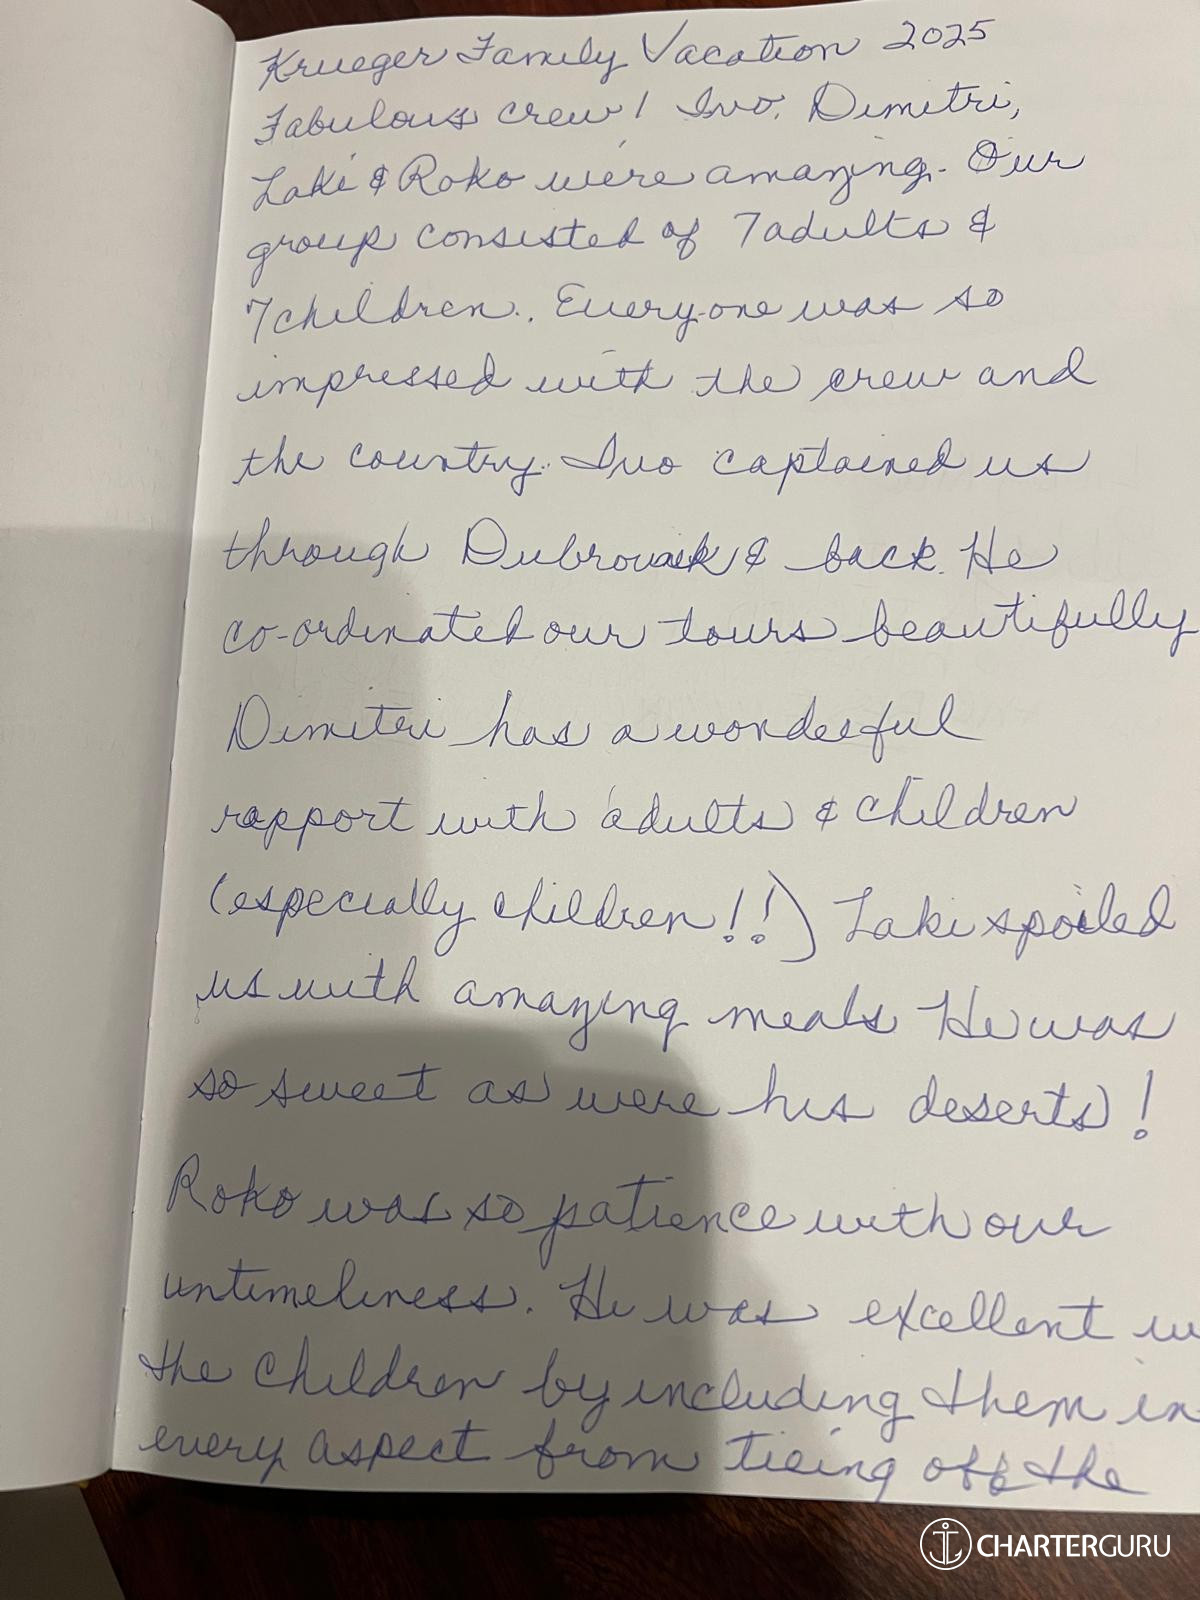 Krueger Family Vacation 2025
Fabulous crew! Ivo, Dimitri,
Laki & Roko were amazing. Our
group consisted of 7 adults &
7 children. Everyone was so
impressed with the crew and
the country. Ivo captained us
through Dubrovnik & back. He
co-ordinated our tours beautifully
Dimitri has a wonderful
rapport with adults & children
(especially children!!) Laki spoiled
us with amazing meals He was
so sweet as were his deserts!
Roko was so patience with our
untimeliness. He was excellent w
the children by including them in
every aspect from tieing off the
CHARTERGURU